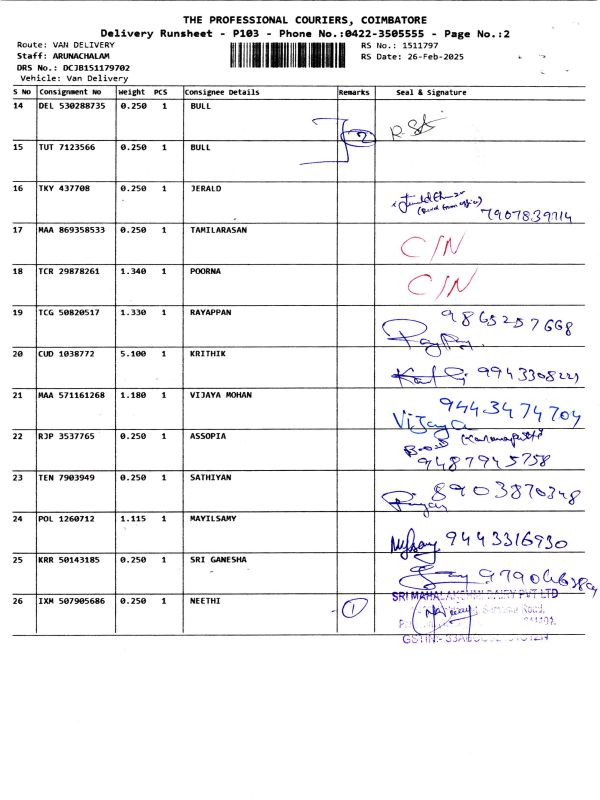 THE PROFESSIONAL COURIERS, COIMBATORE
Delivery Runsheet - P103 - Phone No.:0422-3505555 - Page No.:2
Route: VAN DELIVERY RS No.: 1511797
Staff: ARUNACHALAM RS Date: 26-Feb-2025
DRS No.: DCJB151179702
Vehicle: Van Delivery
S No Consignment No Weight PCS Consignee Details Remarks Seal & Signature
14 DEL 530288735 0.250 1 BULL
2
15 TUT 7123566 0.250 1 BULL
16 TKY 437708 0.250 1 JERALD
7907839114
17 MAA 869358533 0.250 1 TAMILARASAN C/N
18 TCR 29878261 1.340 1 POORNA C/N
19 TCG 50820517 1.330 1 RAYAPPAN 9865257668
20 CUD 1038772 5.100 1 KRITHIK
21 MAA 571161268 1.180 1 VIJAYA MOHAN 9443474704
Vijaya
22 RJP 3537765 0.250 1 ASSOPIA
9487945758
23 TEN 7903949 0.250 1 SATHIYAN 8903870348
24 POL 1260712 1.115 1 MAYILSAMY 9443316930
25 KRR 50143185 0.250 1 SRI GANESHA
26 IXM 507905686 0.250 1 NEETHI 1 SRI MAHALAKSHMI DAIRY PVT LTD